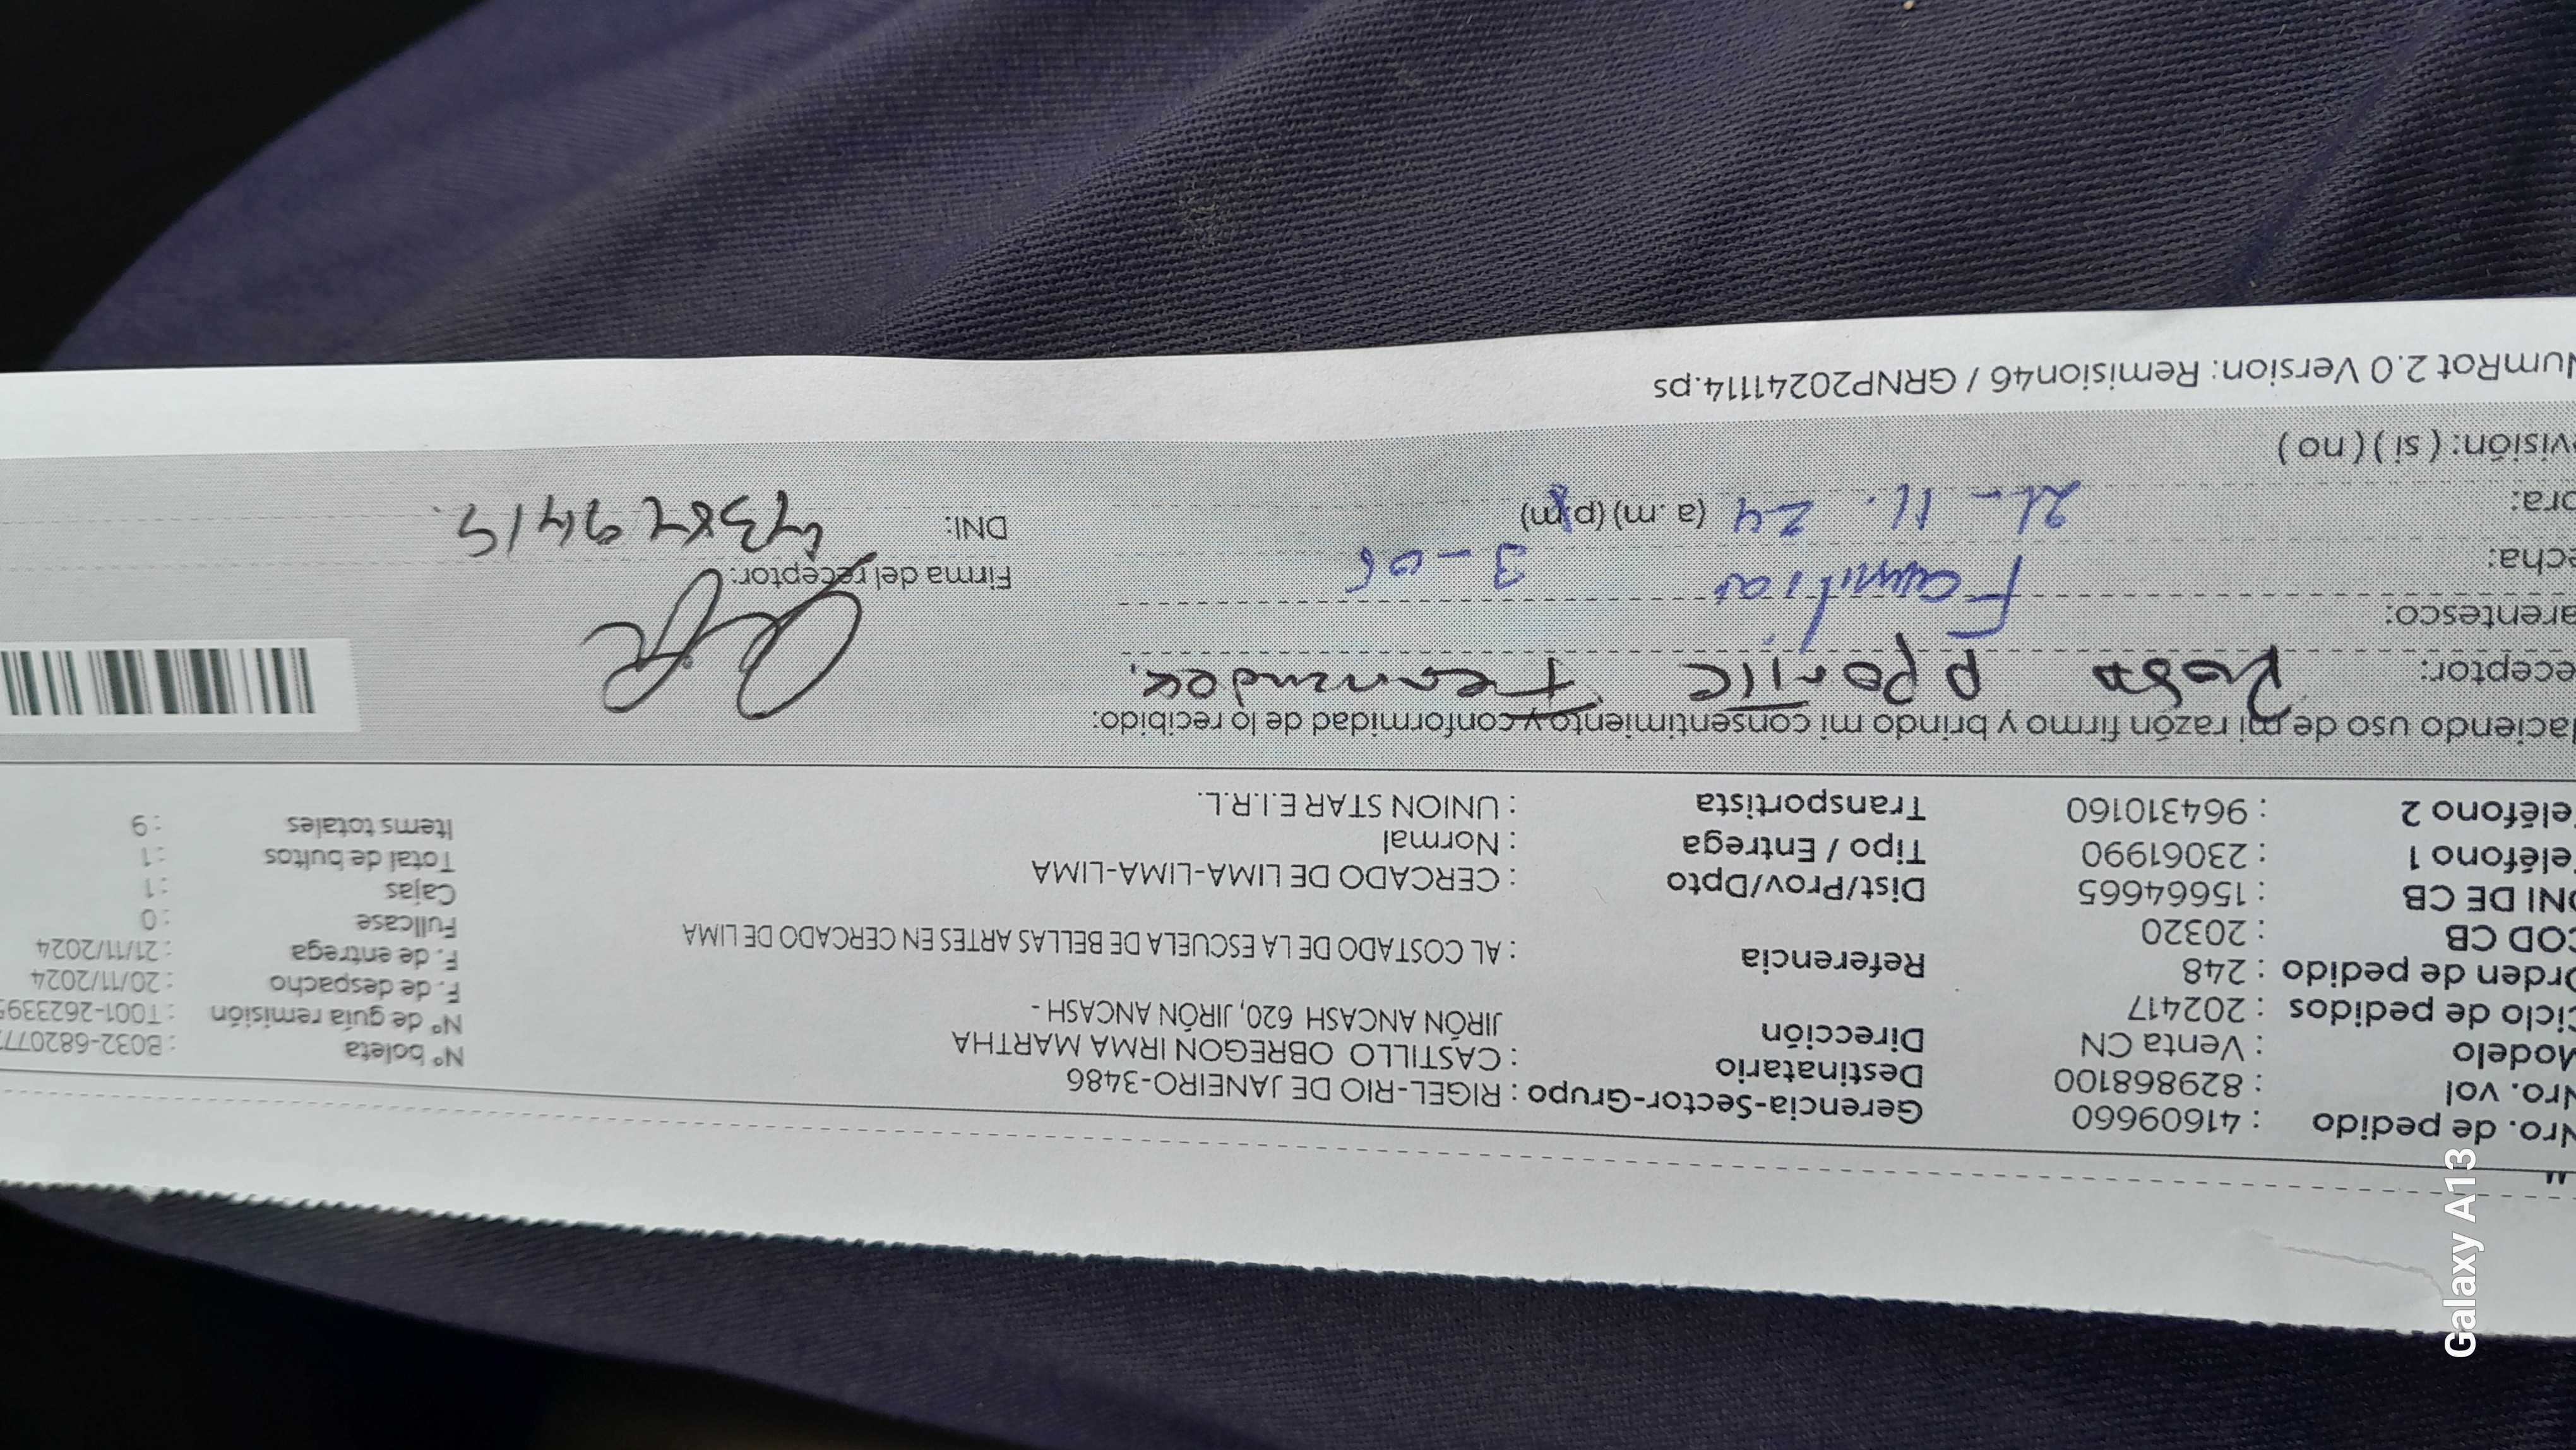 Nro. de pedido : 41609660 Gerencia-Sector-Grupo : RIGEL-RIO DE JANEIRO-3486 N° boleta : B032-682077
Nro. vol : 829868100 Destinatario : CASTILLO OBREGON IRMA MARTHA N° de guía remisión : T001-2623395
Modelo : Venta CN Dirección JIRÓN ANCASH 620, JIRÓN ANCASH - F. de despacho : 20/11/2024
Ciclo de pedidos : 202417 F. de entrega : 21/11/2024
Orden de pedido : 248 Referencia : AL COSTADO DE LA ESCUELA DE BELLAS ARTES EN CERCADO DE LIMA Fullcase : 0
COD CB : 20320 Cajas : 1
DNI DE CB : 15664665 Dist/Prov/Dpto : CERCADO DE LIMA-LIMA-LIMA Total de bultos : 1
Teléfono 1 : 23061990 Tipo / Entrega : Normal Items totales : 9
Teléfono 2 : 964310160 Transportista : UNION STAR E.I.R.L.
Haciendo uso de mi razón firmo y brindo mi consentimiento y conformidad de lo recibido:
eceptor: Rosa
arentesco: Familiar Firma del receptor:
echa: 3-05
ora: 21-11.24 (a.m) (p.m) DNI:
visión: ( si ) ( no )
NumRot 2.0 Version: Remision46 / GRNP20241114.ps
Galaxy A13